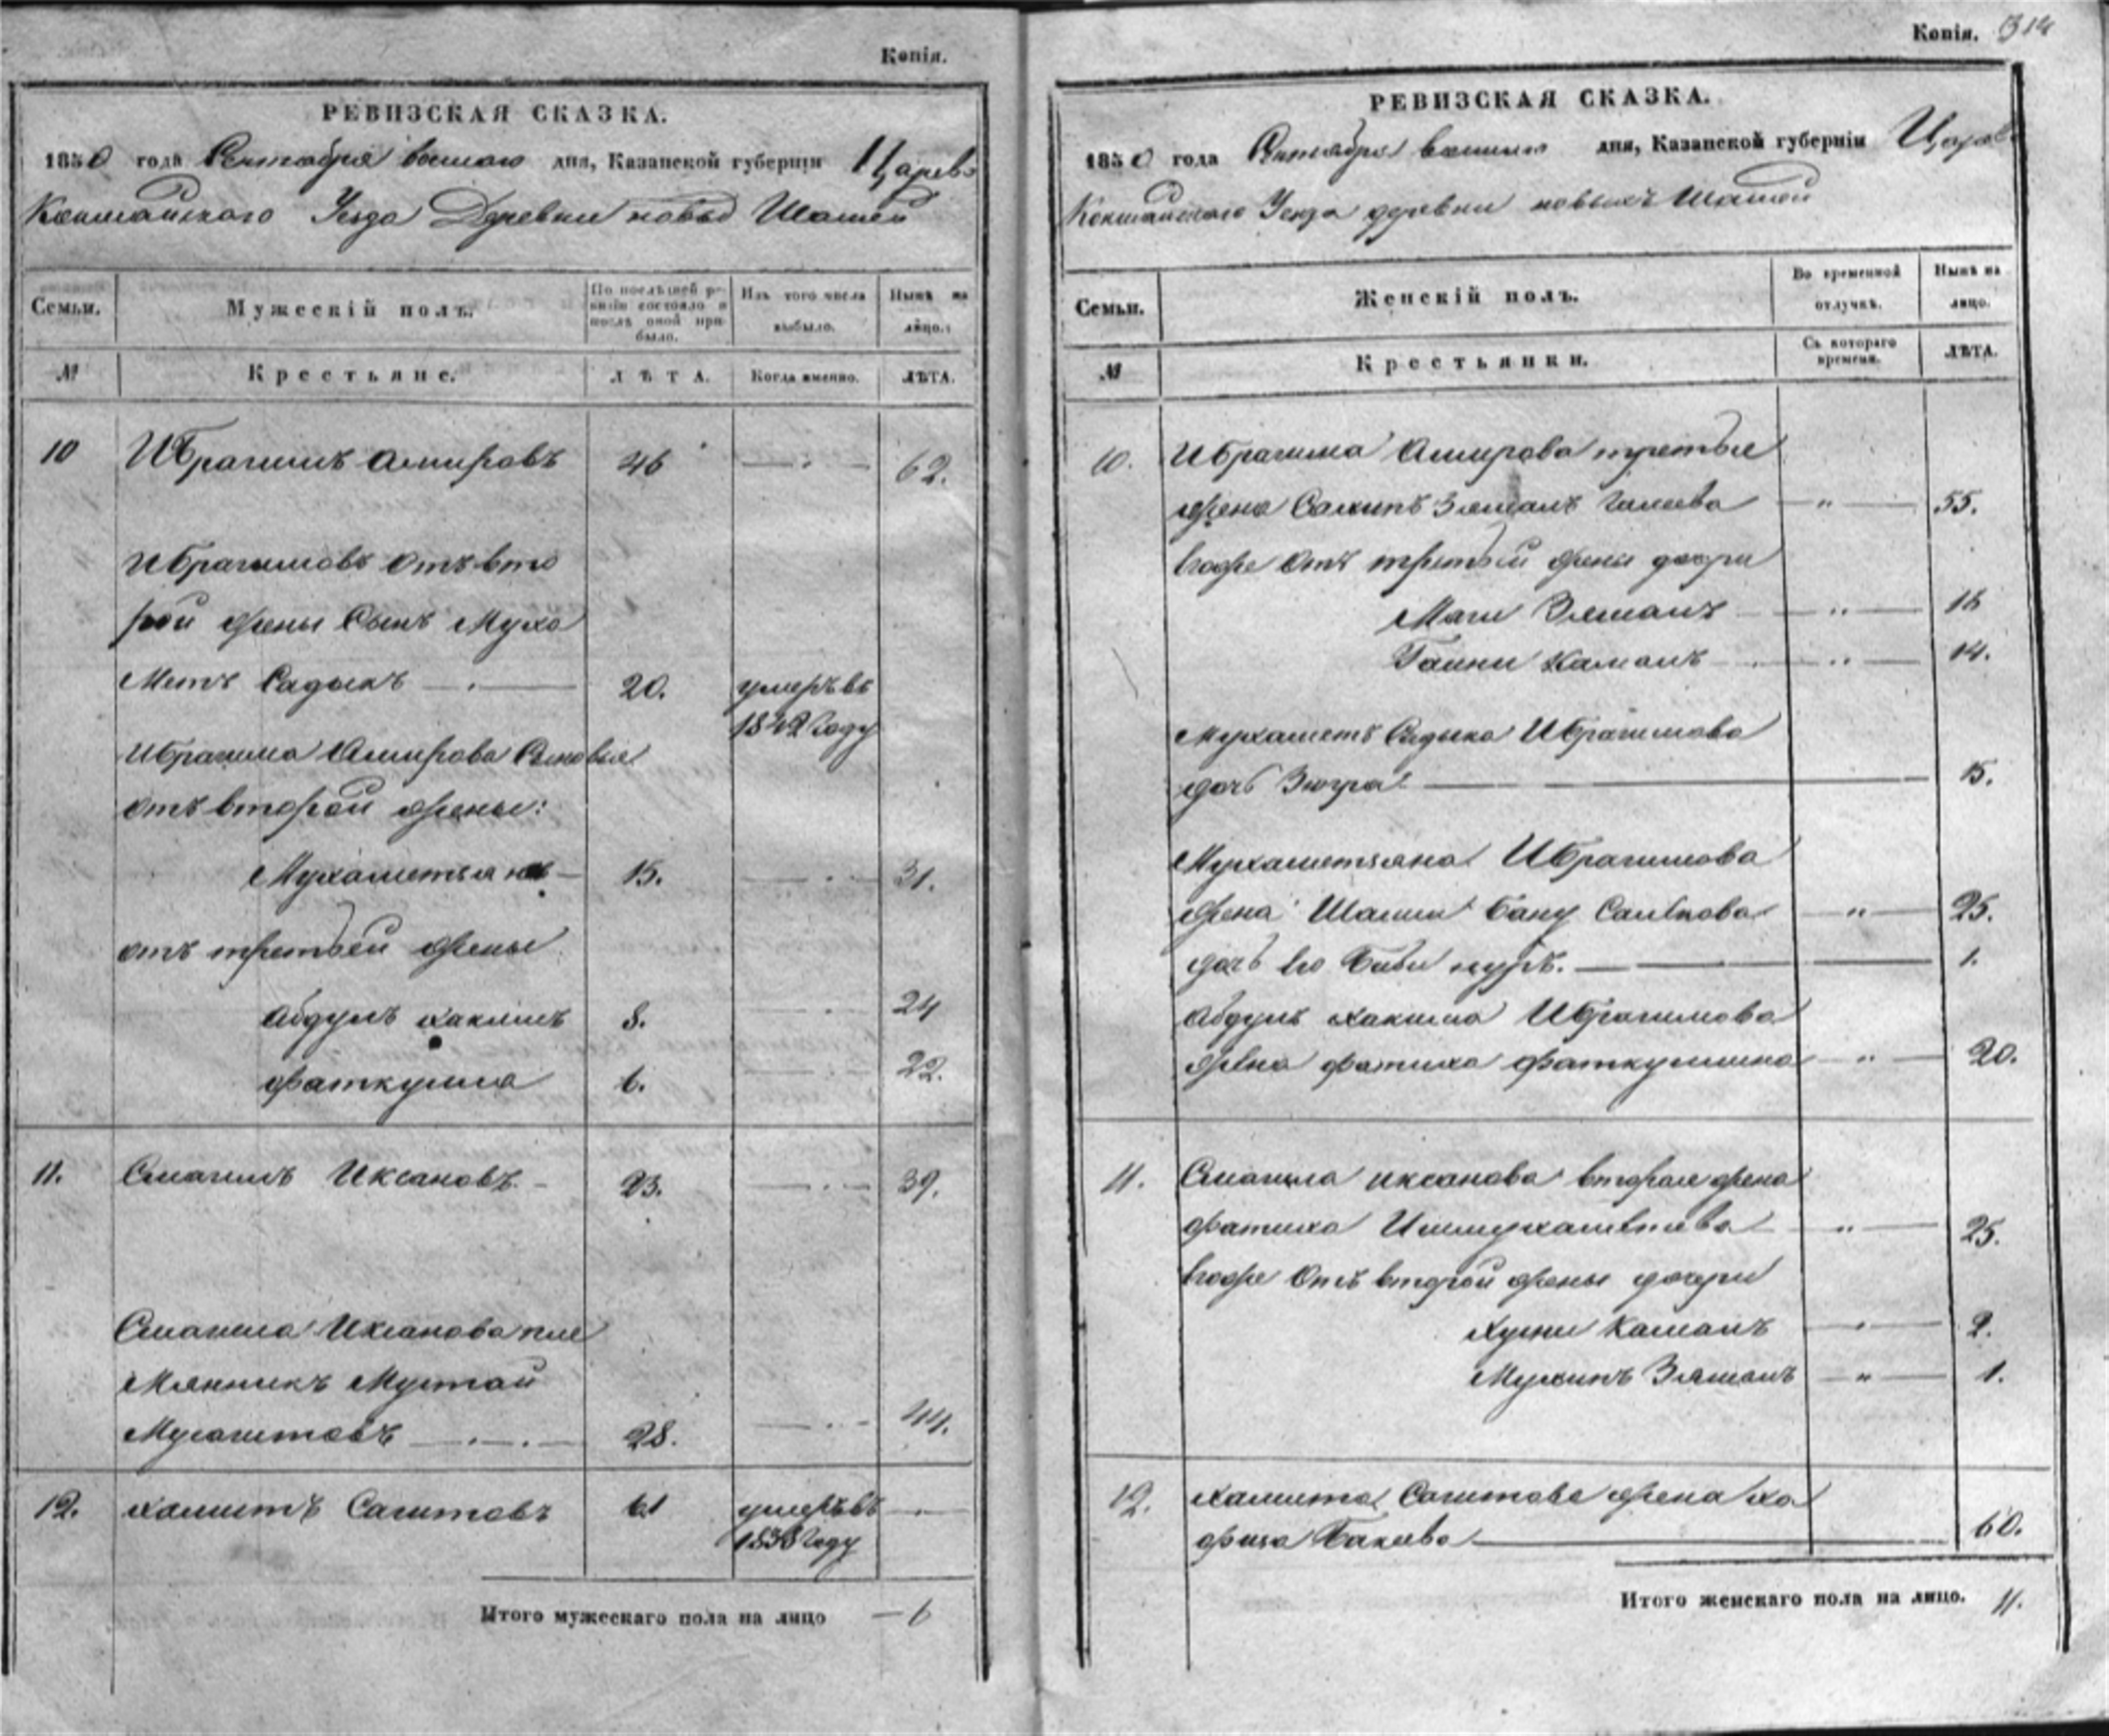 Копія.
РЕВИЗСКАЯ СКАЗКА.
1850 года Октября восьмого дня, Казанской губерніи Царево
Кокшайскаго Уезда Деревни новыхъ
Семьи. Мужескій полъ. По послѣдней ревизіи состояло и послѣ оной прибыло. Изъ того числа выбыло. Нынѣ на лицо.
№ Крестьяне. ЛѢТА. Когда именно. ЛѢТА.
10 Ибрагимъ Амировъ 46 — " — 62.
Ибрагимовъ отъ вто
рой жены Сынъ Муха
Метъ Садыкъ — " — 20. умеръ въ
1842 году
Ибрагима Амирова Сыновья
отъ второй жены:
Мухаметзянъ — 15. — " — 31.
отъ третьей жены
Абдулъ хакимъ 8. — " — 24
фаткулла 6. — " — 22.
11. Смагилъ Иксановъ — 23. — " — 39.
Смагила Иксанова пле
Мянникъ Мустай
Мусагитовъ — " — 28. — " — 44.
12. хамитъ Сагитовъ 61 умеръ въ —
1838 году
Итого мужескаго пола на лицо — 6
Копія. 314
РЕВИЗСКАЯ СКАЗКА.
1850 года Октября восьмого дня, Казанской губерніи Царево
Кокшайскаго Уезда деревни новыхъ
Семьи. Женскій полъ. Во временной отлучкѣ. Нынѣ на лицо.
№ Крестьянки. Съ котораго времени. ЛѢТА.
10. Ибрагима Амирова третья
жена Сахипъ Зямалъ — " — 55.
Его же отъ третьей жены дочери
Маги Зямалъ — " — 18
Гайни Камалъ — " — 14.
Мухаметъ Садыка Ибрагимова
дочь Зюгра — 15.
Мухаметзяна Ибрагимова
жена Шамси Бану Саиткова — " — 25.
дочь Его Биби нуръ. — 1.
Абдулъ хакима Ибрагимова
жена фатиха фаткуллина — " — 20.
11. Смагила иксанова вторая жена
фатиха Ишмухаметева — " — 25.
Его же отъ второй жены дочери
хусни Камалъ — " — 2.
Мухипъ Зямалъ — " — 1.
12. хамита Сагитова жена ха
физа Бакеева — 60.
Итого женскаго пола на лицо. 11.